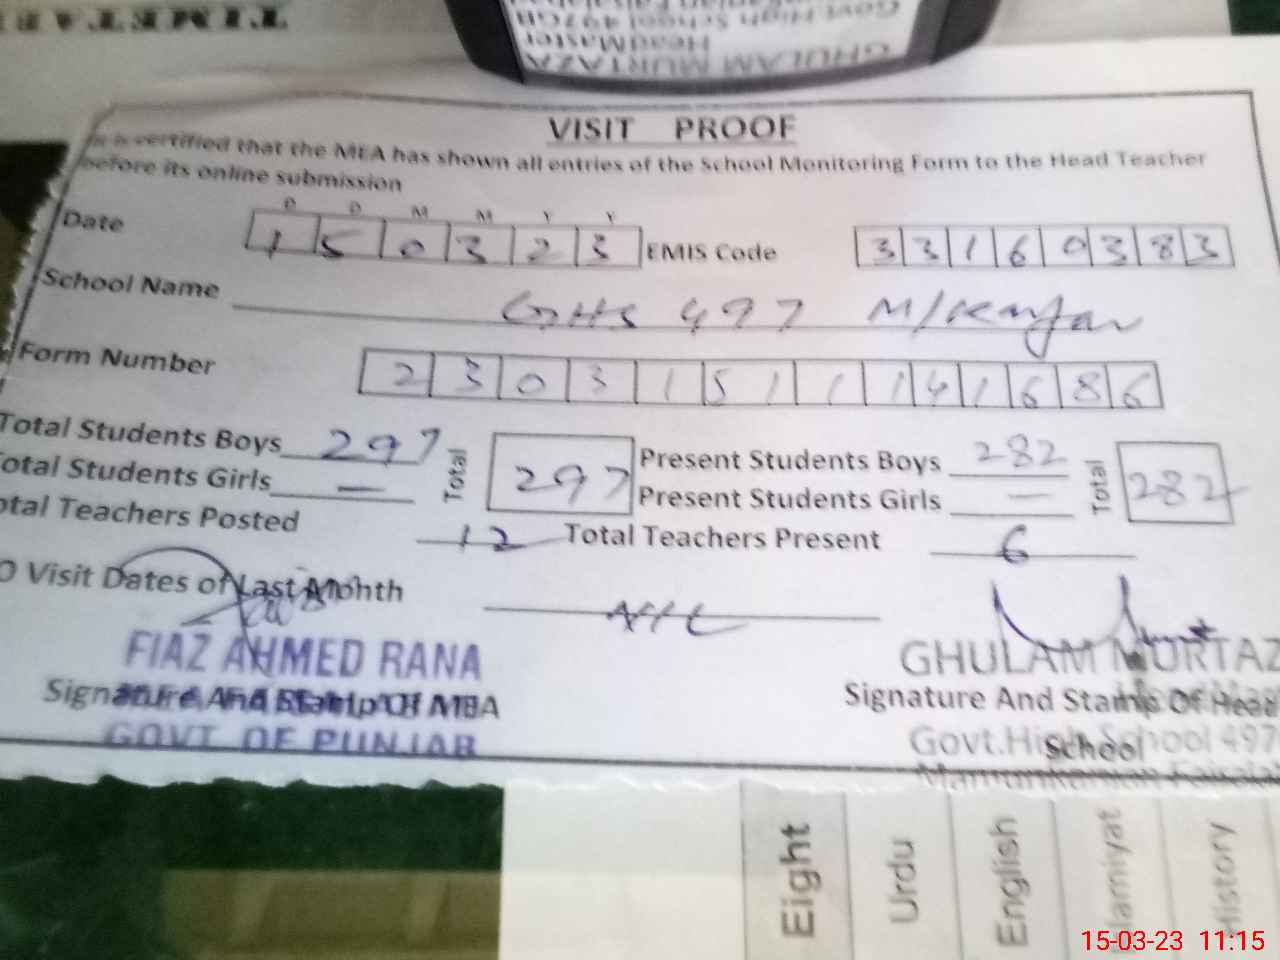 TIMETAB
GHULAM MURTAZA
HeadMaster
Govt.High School 497GB
VISIT PROOF
It is certified that the MEA has shown all entries of the School Monitoring Form to the Head Teacher
before its online submission
D D M M Y Y
Date 1 5 0 3 2 3 EMIS Code 3 3 1 6 0 3 8 3
School Name GHS 497
Form Number 2 3 0 3 1 5 1 1 1 4 1 6 8 6
Total Students Boys 297 Total 297 Present Students Boys 282 Total 282
Total Students Girls — Present Students Girls —
otal Teachers Posted 12 Total Teachers Present 6
O Visit Dates of Last Month
FIAZ AHMED RANA GHULAM MURTAZ
Signature And Stamp Of MEA Signature And Stamp Of Head
GOVT OF PUNJAB Govt.High School 497
School
Eight Urdu English Islamiyat History
15-03-23 11:15